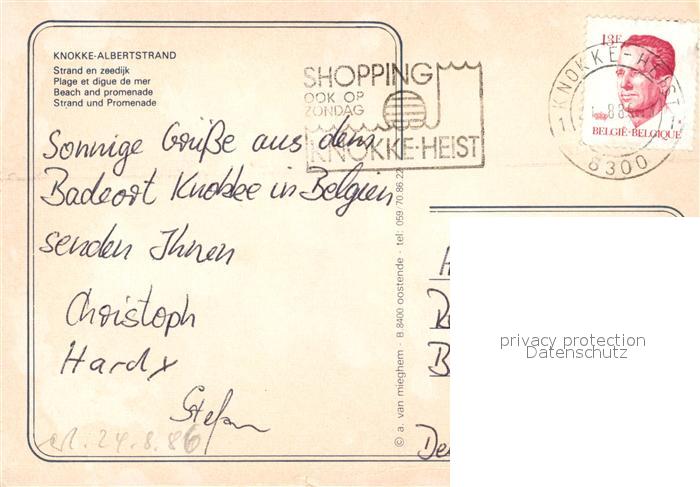 KNOKKE-ALBERTSTRAND
Strand en zeedijk
Plage et digue de mer
Beach and promenade
Strand und Promenade
SHOPPING
OOK OP
ZONDAG
KNOKKE-HEIST
13F
BELGIË-BELGIQUE
KNOKKE-HEIST
8300
Sonnige Grüße aus dem
Badeort Knokke in Belgien
senden Ihnen
Christoph
Hardy
Stefan
erl. 24.8.86
© a. van mieghem - B.8400 oostende - tel: 059/70.86.22
privacy protection
Datenschutz